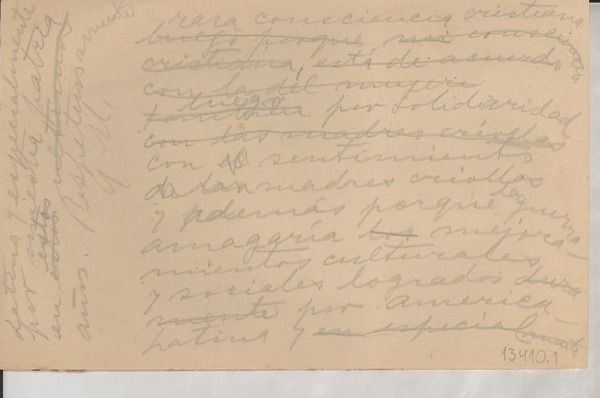 rara consciencia cristiana
luego porque mi consciencia
cristiana, está de acuerdo
con la del mujer
también luego por solidaridad
con las madres criollas
con el sentimiento
de las madres criollas
y además porque la guerra
amagaría los mejora-
mientos culturales
y sociales logrados dura-
mente por America
Latina y en especialmente
Latina y especialmente
por nuestra patria
en estos ultimos
años. Respetuosamente
G. M.
13410.1